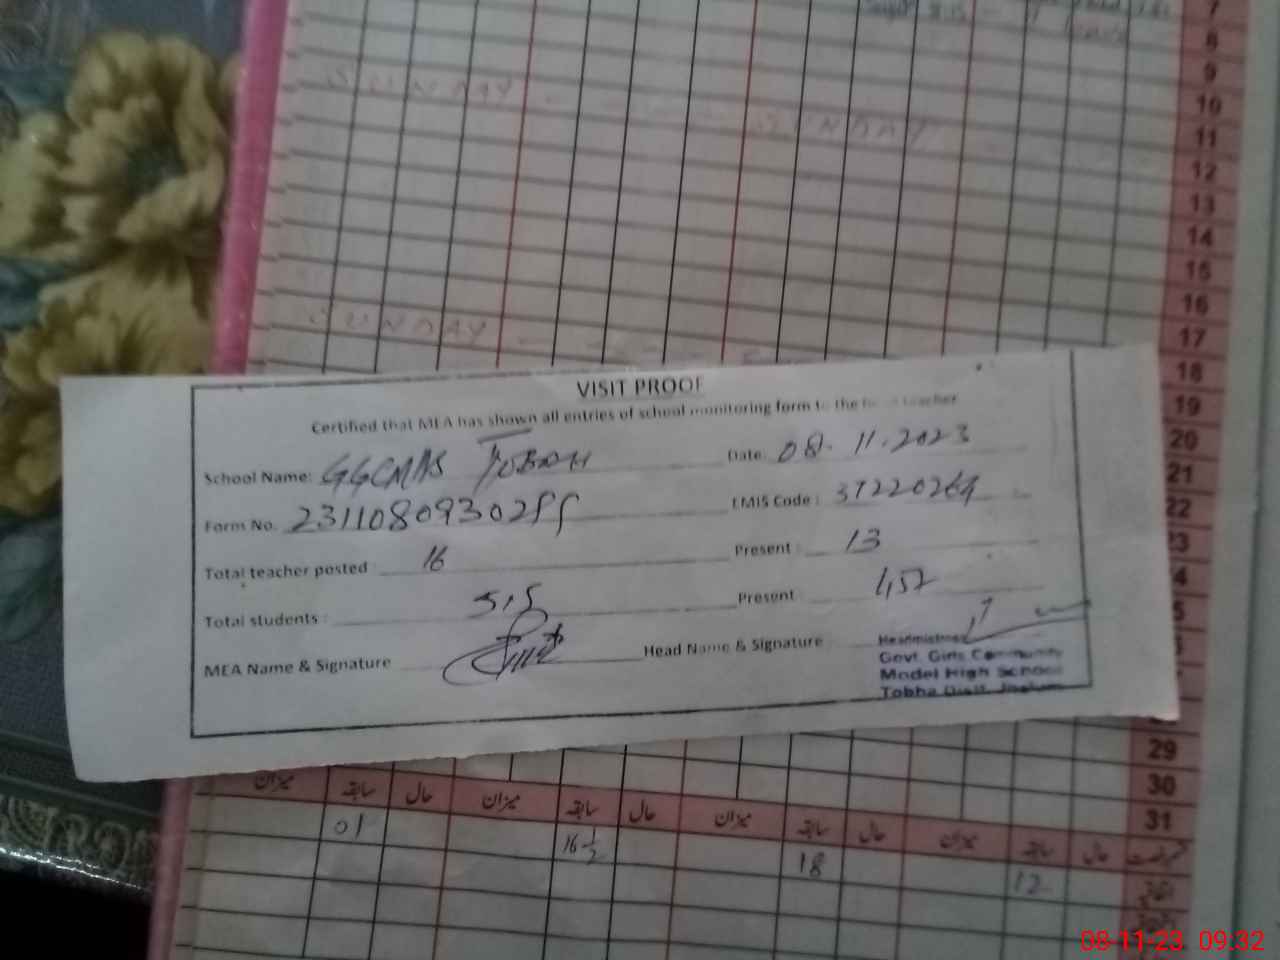 7
8
9
S U N D A Y
10
S U N D A Y
11
12
13
14
15
16
S U N D A Y
17
18
19
20
21
22
VISIT PROOF
Certified that MEA has shown all entries of school monitoring form to the head teacher
School Name: GGCMHS TOBAH Date: 08.11.2023
Form No. EMIS Code: 37220264
Total teacher posted: 16 Present: 13
Total students: 515 Present: 457
MEA Name & Signature Head Name & Signature
Headmistress
Govt. Girls Community
Model High School
Tobha Distt. Jhelum
29
30
31
میزان سابقہ حال میزان سابقہ حال میزان سابقہ حال میزان سابقہ حال
01 16 1/2 18 12
08-11-23 09:32